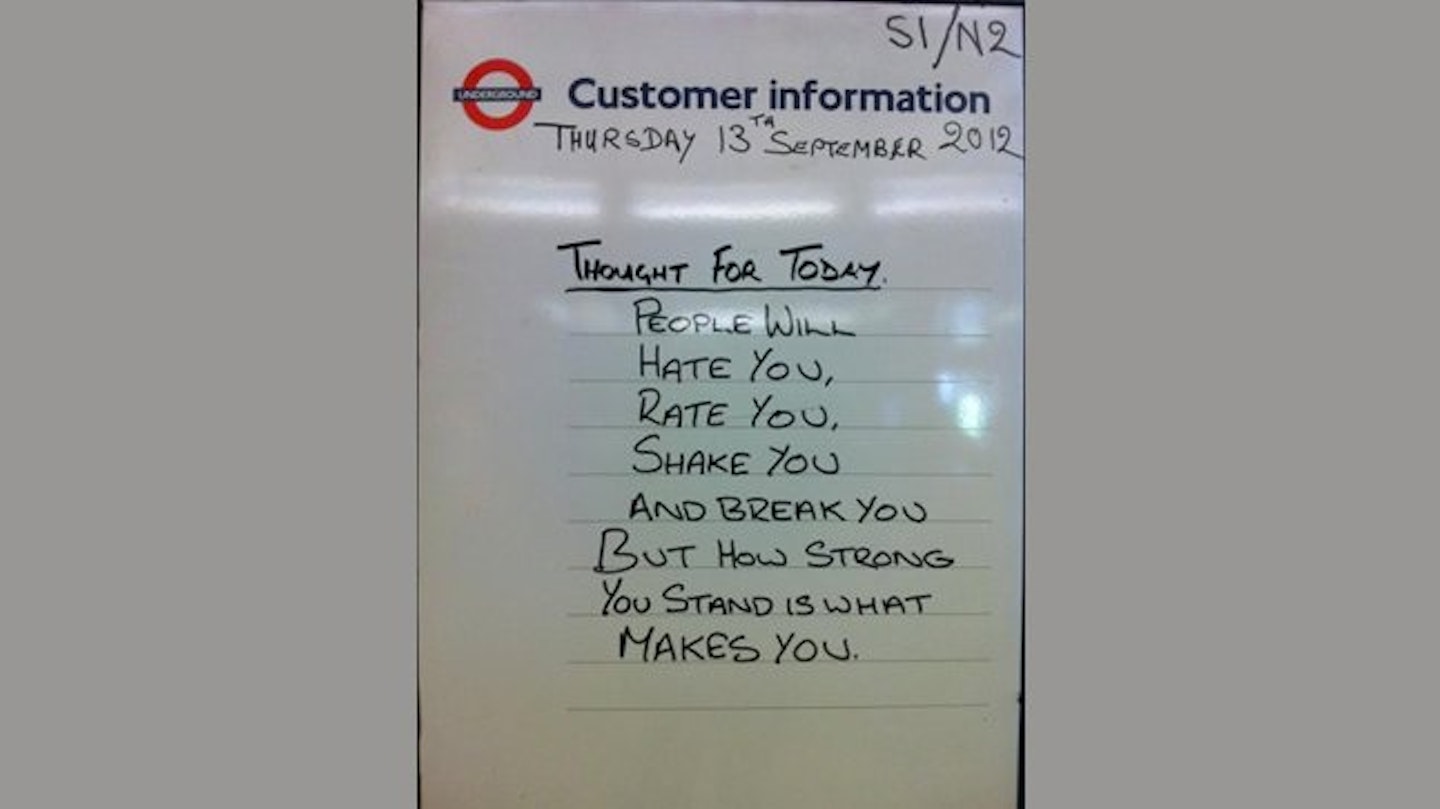 S1/N2
UNDERGROUND
Customer information
THURSDAY 13TH SEPTEMBER 2012
THOUGHT FOR TODAY.
PEOPLE WILL
HATE YOU,
RATE YOU,
SHAKE YOU
AND BREAK YOU
BUT HOW STRONG
YOU STAND IS WHAT
MAKES YOU.